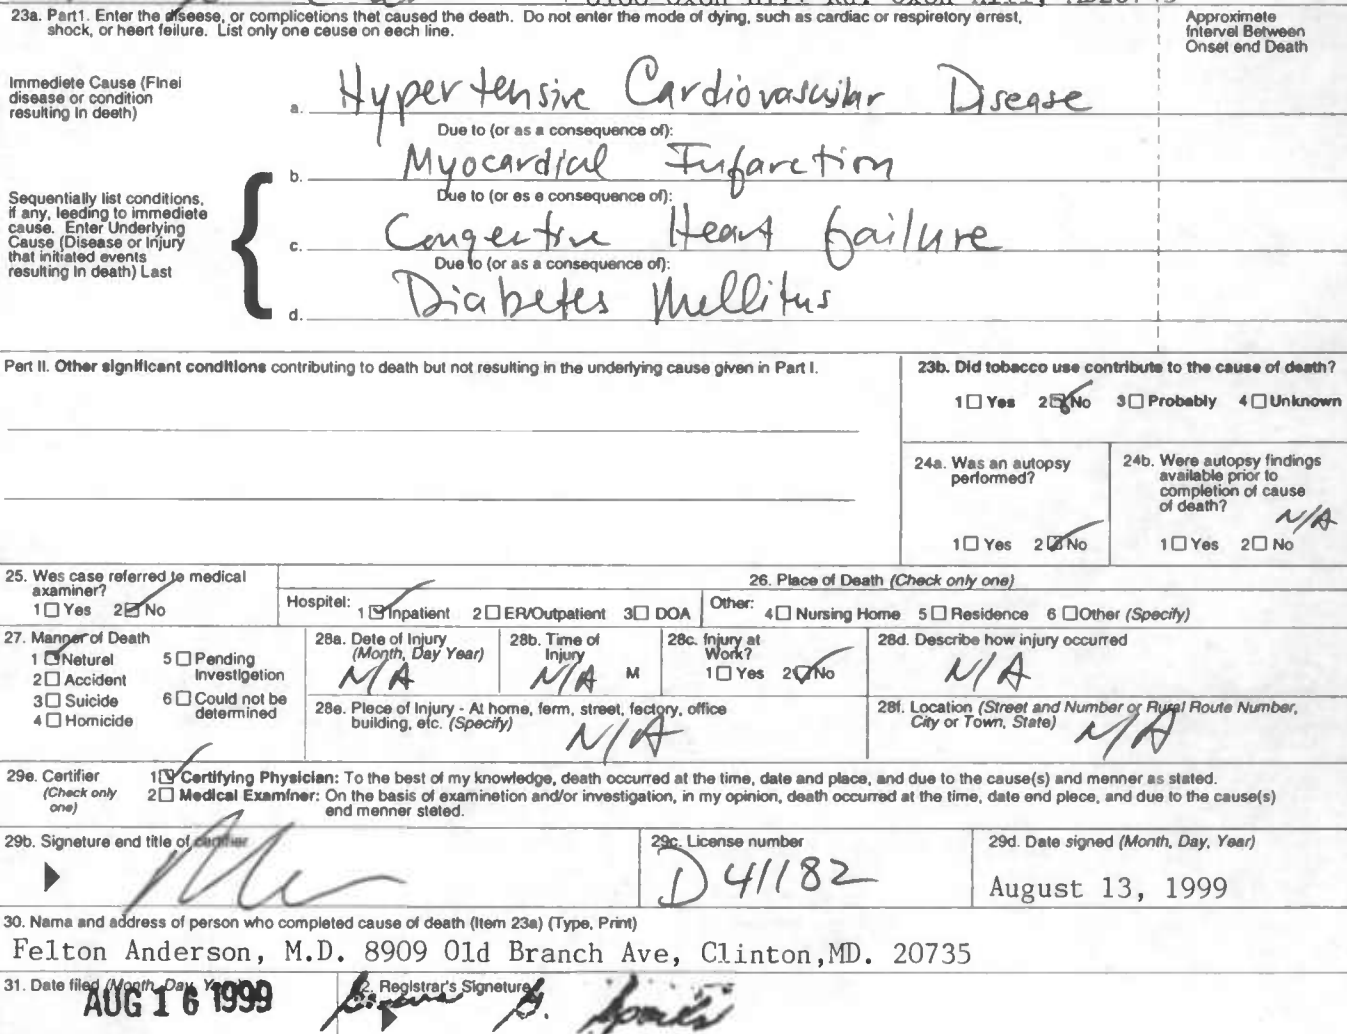 23a. Part1. Enter the diseese, or complicetions thet caused the death. Do not enter the mode of dying, such as cardiac or respiretory errest,
shock, or heert feilure. List only one ceuse on eech line.
Approximete
Intervel Between
Onset end Death
Immediete Cause (Finel
disease or condition
resulting In deeth)
a. Hypertensive Cardiovascular Disease
Due to (or as a consequence of):
b. Myocardial Infarction
Due to (or es e consequence of):
Sequentially list conditions,
if any, leeding to immediete
cause. Enter Underlying
Cause (Disease or Injury
that initiated events
resulting In death) Last
c. Congective Heart failure
Due to (or as a consequence of):
d. Diabetes Mellitus
Part II. Other significant conditions contributing to death but not resulting in the underlying cause given in Part I.
23b. Did tobacco use contribute to the cause of death?
1☐ Yes 2☑ No 3☐ Probably 4☐ Unknown
24a. Was an autopsy
performed?
1☐ Yes 2☑ No
24b. Were autopsy findings
available prior to
completion of cause
of death?
N/A
1☐ Yes 2☐ No
25. Wes case referred to medical
examiner?
1☐ Yes 2☑ No
26. Place of Death (Check only one)
Hospitel: 1☑ Inpatient 2☐ ER/Outpatient 3☐ DOA Other: 4☐ Nursing Home 5☐ Residence 6☐ Other (Specify)
27. Manner of Death
1☑ Neturel 5☐ Pending
Investigetion
2☐ Accident
3☐ Suicide 6☐ Could not be
determined
4☐ Homicide
28a. Dete of Injury
(Month, Day Year)
N/A
28b. Time of
Injury
N/A M
28c. Injury at
Work?
1☐ Yes 2☑ No
28d. Describe how injury occurred
N/A
28e. Plece of Injury - At home, ferm, street, fectory, office
building, etc. (Specify)
N/A
28f. Location (Street and Number or Rural Route Number,
City or Town, State)
N/A
29e. Certifier
(Check only
one)
1☑ Certifying Physician: To the best of my knowledge, death occurred at the time, date and place, and due to the cause(s) and menner as stated.
2☐ Medical Examiner: On the basis of examinetion and/or investigation, in my opinion, death occurred at the time, date end plece, and due to the cause(s)
end menner steted.
29b. Signeture end title of certifier
29c. License number
D 41182
29d. Date signed (Month, Day, Year)
August 13, 1999
30. Name and address of person who completed cause of death (Item 23a) (Type, Print)
Felton Anderson, M.D. 8909 Old Branch Ave, Clinton,MD. 20735
31. Date filed (Month, Day,
AUG 16 1999
Registrar's Signeture